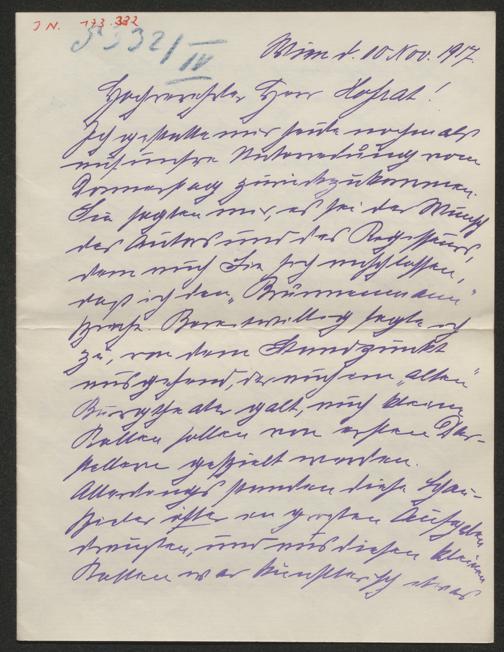 J.N. 173.332
5332/IV
Wien d. 10 Nov. 1917.
Hochverehrter Herr Hofrat!
Ich gestatte mir heute nochmals
auf unsre Unterredung vom
Donnerstag zurückzukommen.
Sie sagten mir, es sei der Wunsch
des Autors und des Regisseurs,
dem auch Sie sich anschlossen,
daß ich den „Brünnemann"
spiele. Bereitwillig sagte ich
zu, von dem Standpunkt
ausgehend, der auch im „alten"
Burgtheater galt, auch kleine
Rollen sollen von ersten Dar-
stellern gespielt werden.
Allerdings standen diese Schau-
spieler öfter in großen Aufgaben
draußen, und aus diesen kleinen
Rollen war künstlerisch etwas